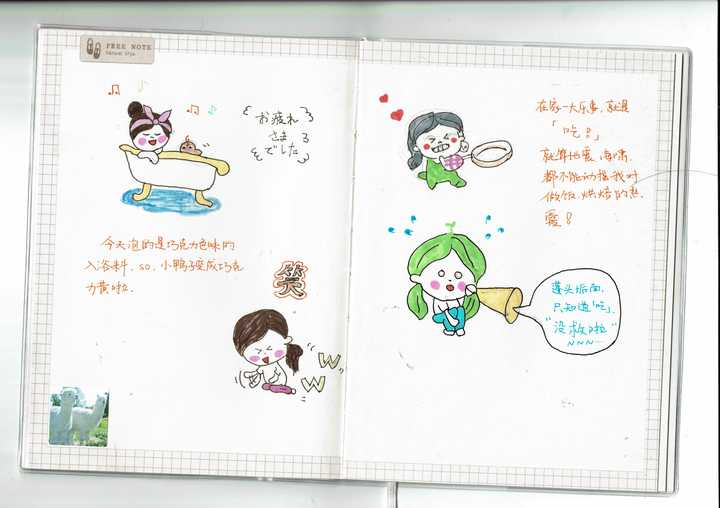 FREE NOTE
お疲れ
さま
でした
今天泡的是巧克力色味的
入浴料, so, 小鸭子变成巧克
力黄啦.
笑
W
W
在家一大乐事, 就是
「吃?」
就算地震、海啸,
都不能动摇我对
做饭、烘焙的热
爱?
蓬头垢面,
只知道「吃」,
"没救啦"
~~~